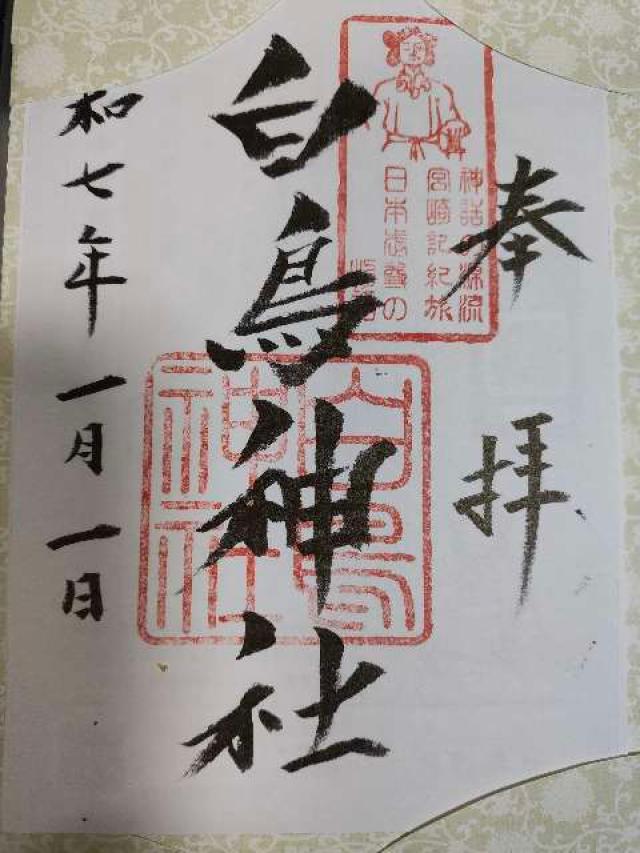 奉拝
神話の源流
宮崎記紀旅
日本武尊の
白鳥神社
白鳥
神社
和七年一月一日